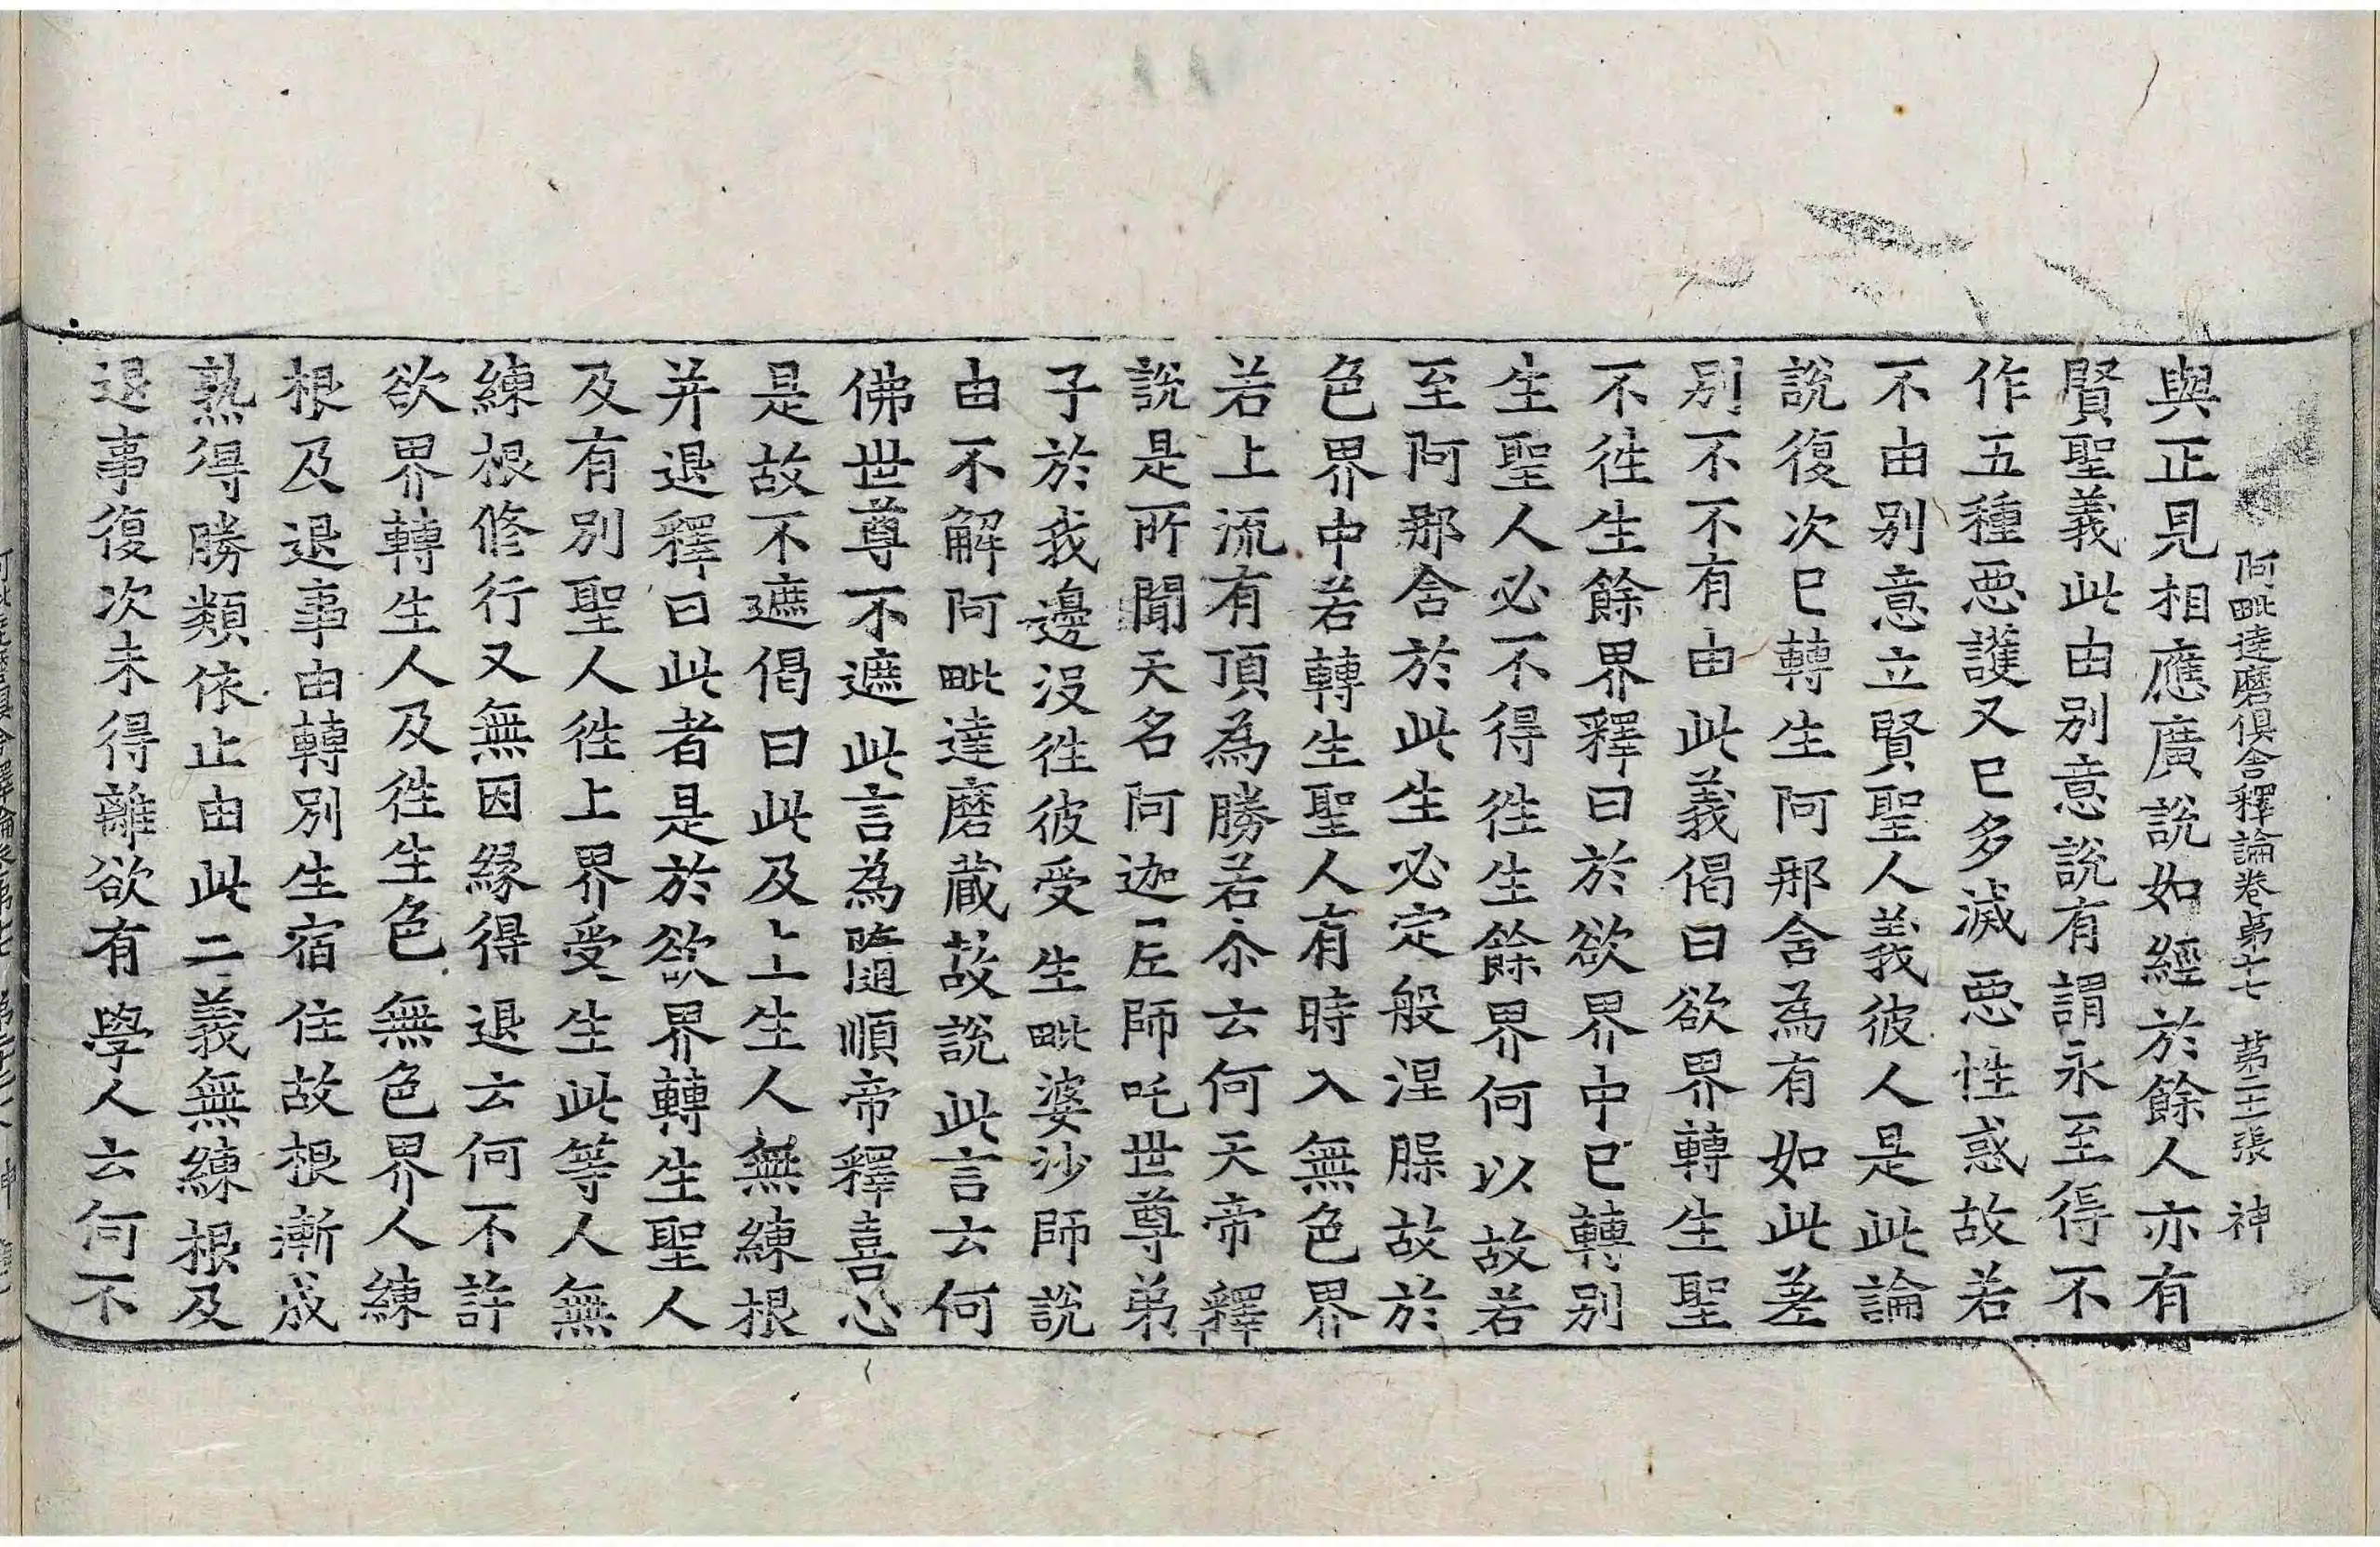 阿毗達磨俱舍釋論卷第十七 第二十張 神
與正見相應廣說如經於餘人亦有
賢聖義此由別意說有謂永至得不
作五種惡護又已多滅惡性惑故若
不由別意立賢聖人義彼人是此論
說復次已轉生阿那含為有如此差
別不不有由此義偈曰欲界轉生聖
不徃生餘界釋曰於欲界中已轉別
生聖人必不得徃生餘界何以故若
至阿那含於此生必定般涅槃故於
色界中若轉生聖人有時入無色界
若上流有頂為勝若尒云何天帝釋
說是所聞天名阿迦尼師吒世尊弟
子於我邊沒徃彼受生毗婆沙師說
由不解阿毗達磨藏故說此言云何
佛世尊不遮此言為隨順帝釋喜心
是故不遮偈曰此及上生人無練根
并退釋曰此者是於欲界轉生聖人
及有別聖人徃上界受生此等人無
練根修行又無因緣得退云何不許
欲界轉生人及徃生色無色界人練
根及退事由轉別生宿住故根漸成
熟得勝類依止由此二義無練根及
退事復次未得離欲有學人云何不